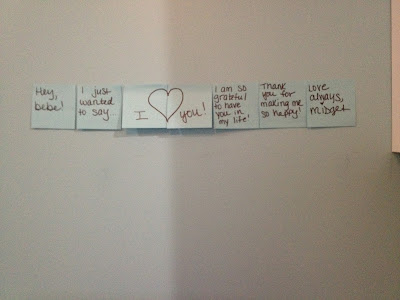 Hey,
bebe!
I just
wanted
to say...
I ♡ you!
I am so
grateful
to have
you in
my life!
Thank
you for
making me
so happy!
Love
always,
midget